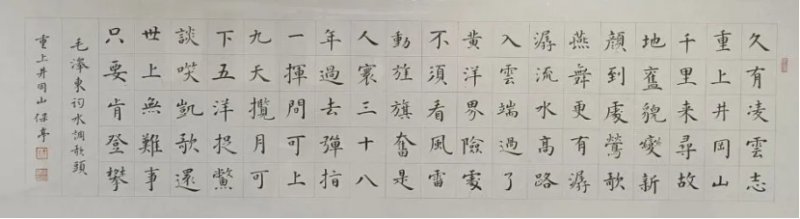 久有凌雲志
重上井岡山
千里来尋故
地舊貌變新
顔到處鶯歌
燕舞更有潺
潺流水高路
入雲端過了
黄洋界險處
不須看風雷
動旌旗奮是
人寰三十八
年過去彈指
一揮間可上
九天攬月可
下五洋捉鱉
談笑凱歌還
世上無難事
只要肯登攀
毛澤東詞水調歌頭
重上井岡山